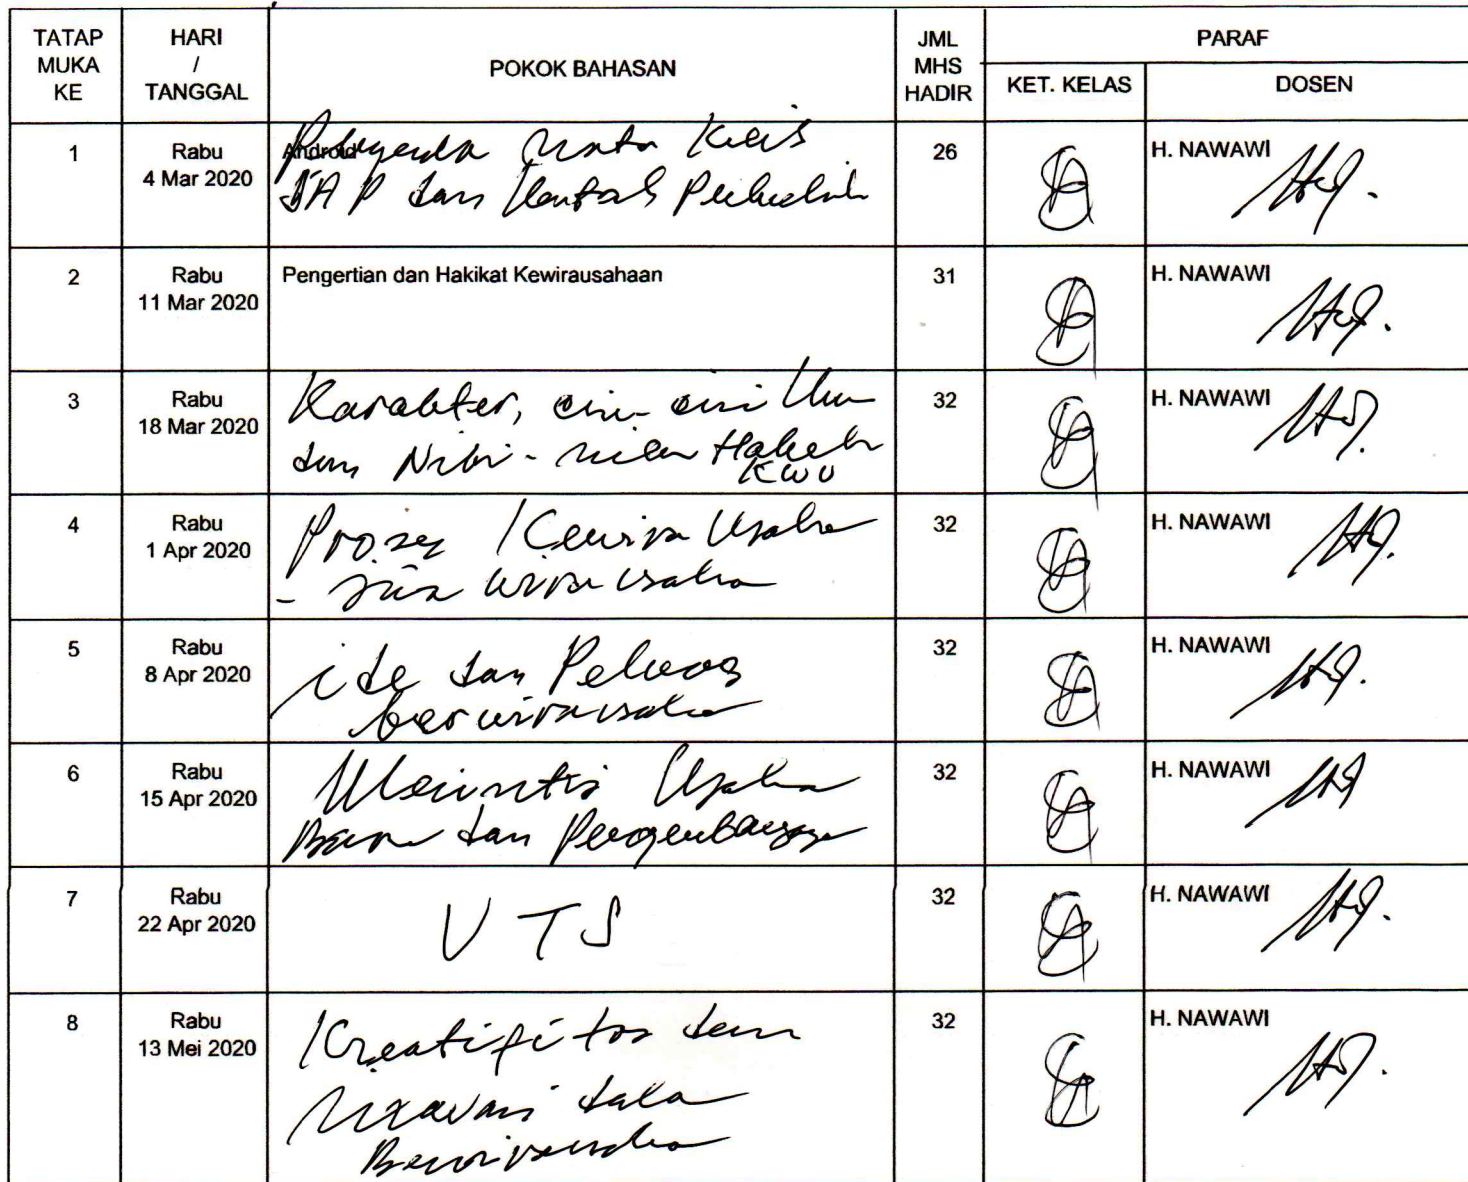 TATAP MUKA KE
HARI / TANGGAL
POKOK BAHASAN
JML MHS HADIR
PARAF
KET. KELAS
DOSEN
1
Rabu
4 Mar 2020
Android
Mata
SAP dan Kontrak
26
H. NAWAWI
2
Rabu
11 Mar 2020
Pengertian dan Hakikat Kewirausahaan
31
H. NAWAWI
3
Rabu
18 Mar 2020
Karakter, ciri-ciri
dan Nilai-nilai
KWU
32
H. NAWAWI
4
Rabu
1 Apr 2020
Proses
wirausaha
32
H. NAWAWI
5
Rabu
8 Apr 2020
ide dan Peluang
berwirausaha
32
H. NAWAWI
6
Rabu
15 Apr 2020
Merintis Usaha
dan
32
H. NAWAWI
7
Rabu
22 Apr 2020
UTS
32
H. NAWAWI
8
Rabu
13 Mei 2020
Kreatifitas dan
32
H. NAWAWI